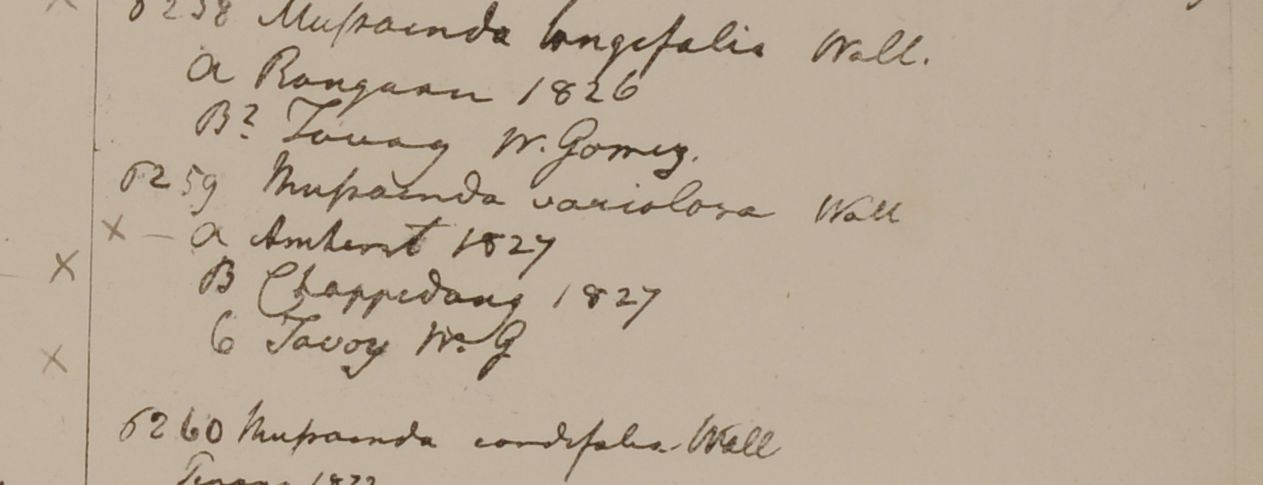 6258 Mussaenda longifolia Wall.
a Rangoon 1826
B? Tavoy W. Gomez.
6259 Mussaenda variolosa Wall
× — a Amherst 1827
× B Chappedong 1827
× 6 Tavoy W. G
6260 Mussaenda cordifolia Wall